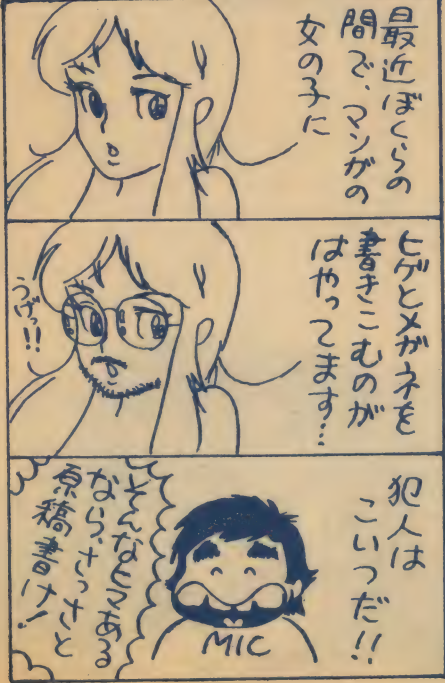 最近ぼくらの
間で、マンガの
女の子に
ヒゲとメガネを
書きこむのが
はやってます…
うげっ!!
犯人は
こいつだ!!
MIC
そんなヒマある
なら、さっさと
原稿書け!